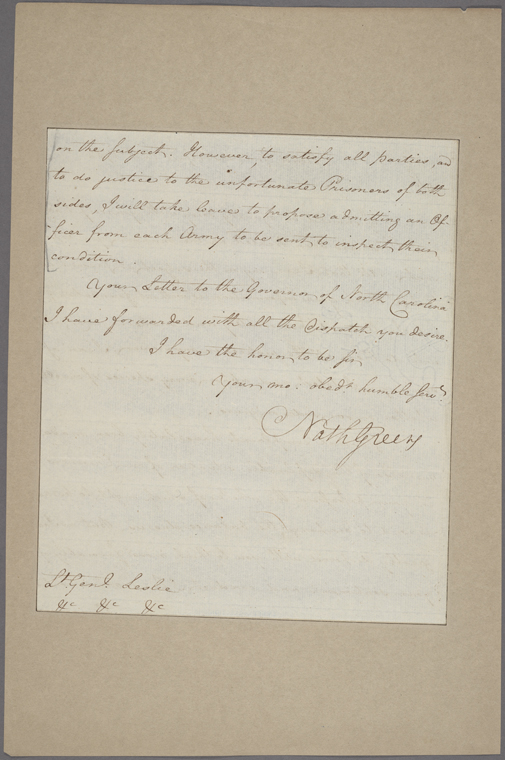 on the Subject. However, to satisfy all parties, and
to do justice to the unfortunate Prisoners of both
sides, I will take leave to propose admitting an Of-
ficer from each Army to be sent to inspect their
condition.
Your Letter to the Governor of North Carolina
I have forwarded with all the Dispatch you desire.
I have the honor to be Sir
Your mo: obedt. humble Servt.
Nath Greene
Lt. Genl. Leslie
&c &c &c